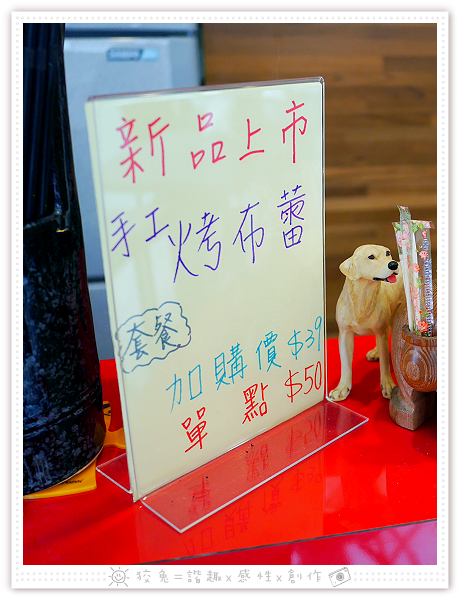 新品上市
手工烤布蕾
套餐
加購價$39
單點$50
狡兔=諧趣x感性x創作